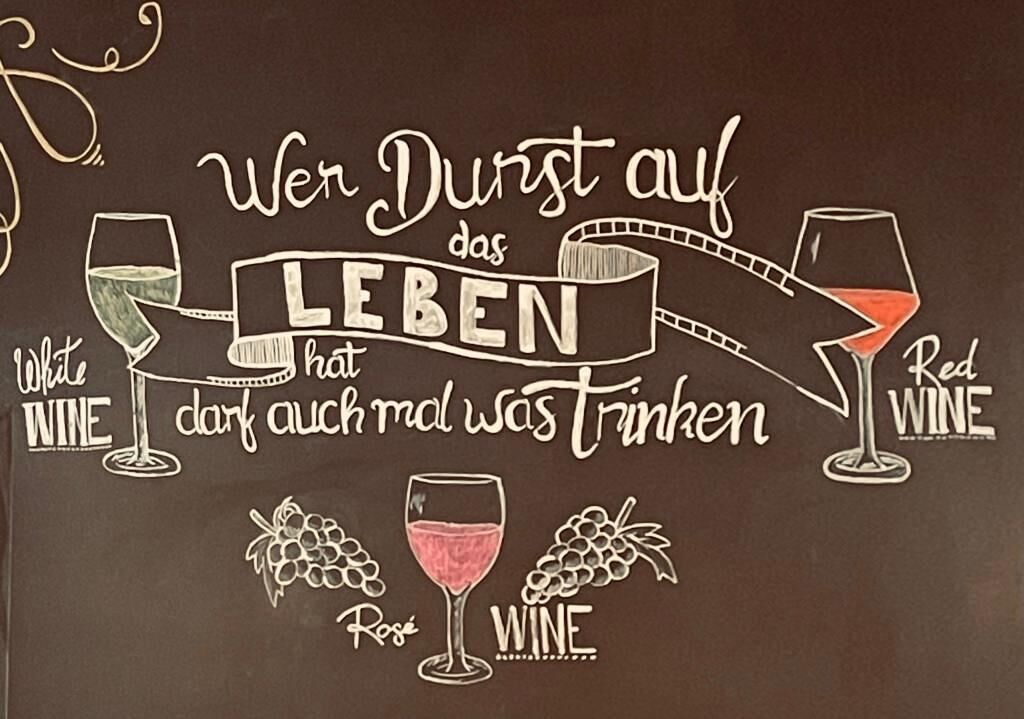 Wer Durst auf
das
LEBEN
hat
darf auch mal was Trinken
White
WINE
Red
WINE
Rosé WINE